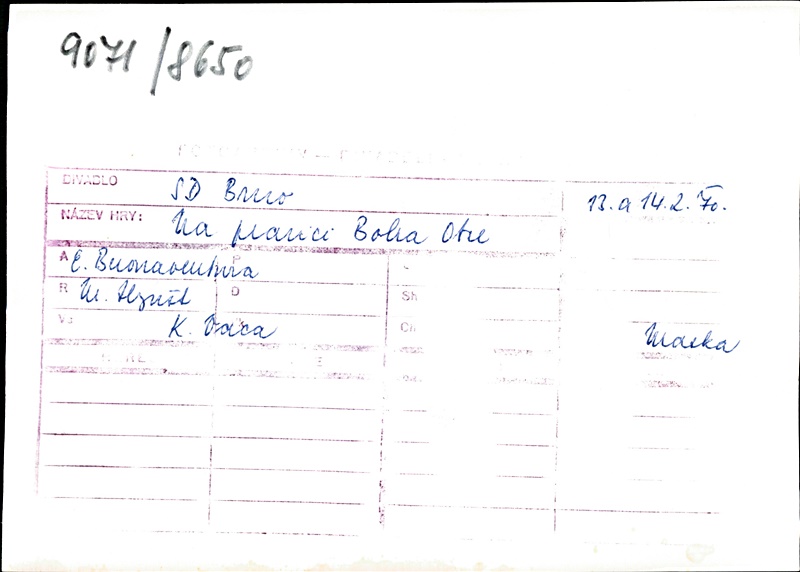 9071/8650
DIVADLO SD Brno 13. a 14.2.70.
NÁZEV HRY: Na pravici Boha Otce
A E. Buonaventura P
R M. Hynšt D Sh
Vs K. Vaca Ch Macka